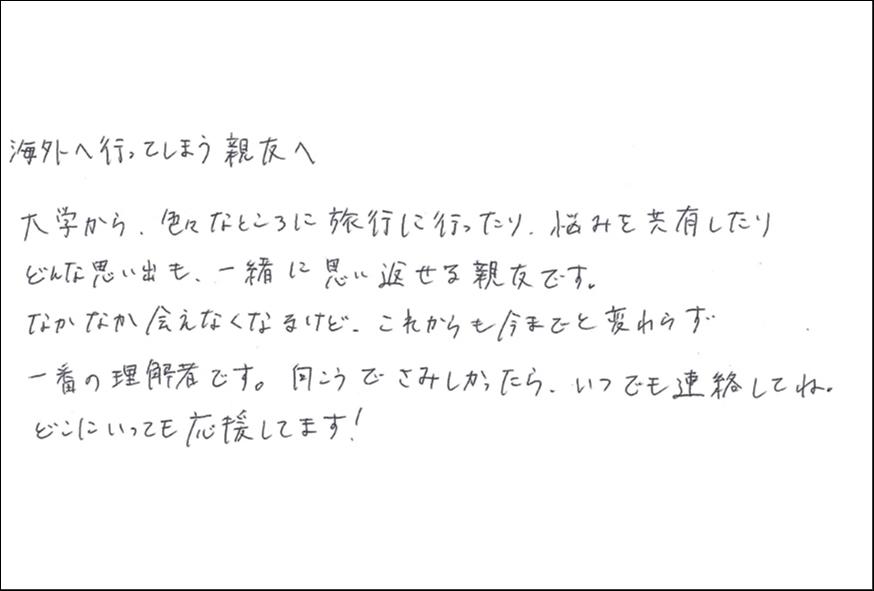 海外へ行ってしまう親友へ
大学から、色々なところに旅行に行ったり、悩みを共有したり
どんな思い出も、一緒に思い返せる親友です。
なかなか会えなくなるけど、これからも今までと変わらず
一番の理解者です。向こうでさみしかったら、いつでも連絡してね。
どこにいっても応援してます！